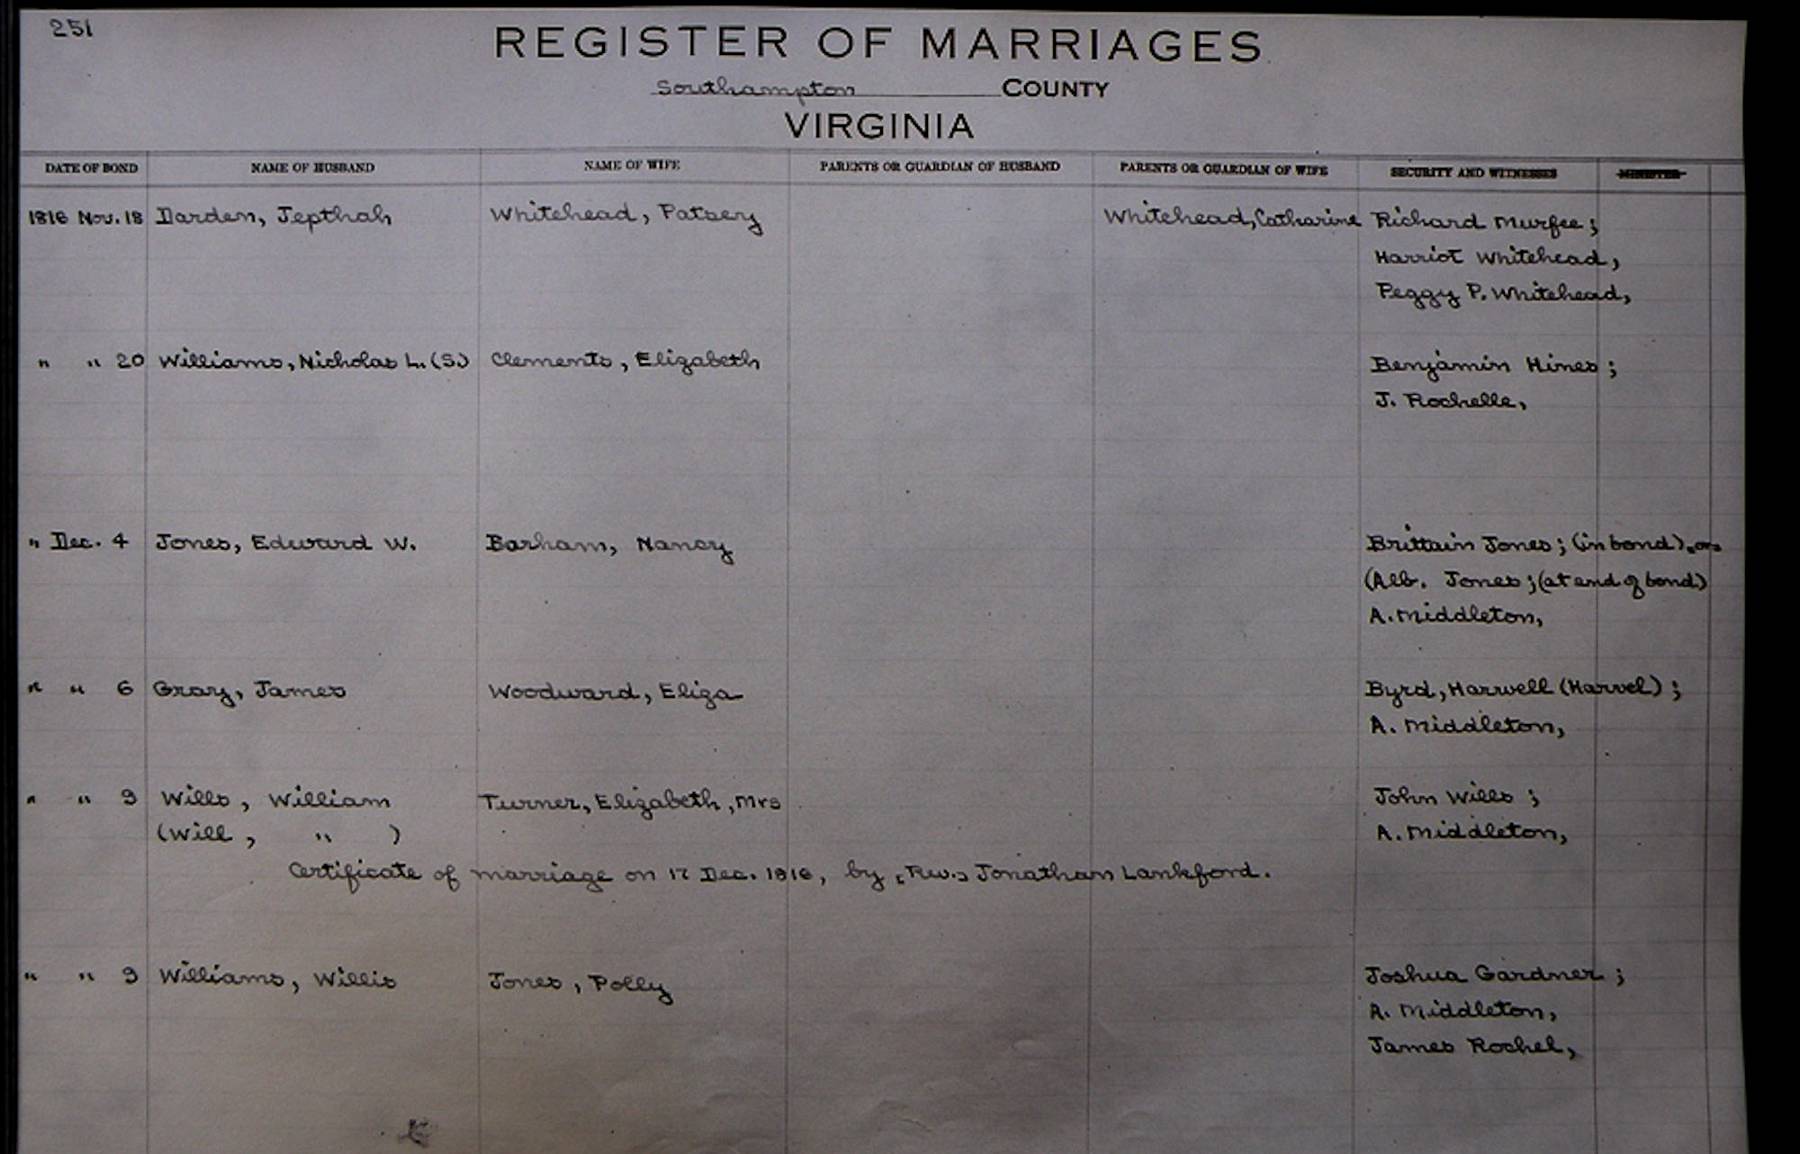 251
REGISTER OF MARRIAGES
Southampton COUNTY
VIRGINIA
DATE OF BOND NAME OF HUSBAND NAME OF WIFE PARENTS OR GUARDIAN OF HUSBAND PARENTS OR GUARDIAN OF WIFE SECURITY AND WITNESSES MINISTER
1816 Nov. 18 Darden, Jepthah Whitehead, Patsey Whitehead, Catharine Richard Murfee;
Harriot Whitehead,
Peggy P. Whitehead,
" " 20 Williams, Nicholas L. (S.) Clements, Elizabeth Benjamin Hines;
J. Rochelle,
" Dec. 4 Jones, Edward W. Barham, Nancy Brittain Jones; (in bond), or
(Alb. Jones; (at end of bond)
A. Middleton,
" " 6 Gray, James Woodward, Eliza Byrd, Harwell (Harvel);
A. Middleton,
" " 9 Wills, William Turner, Elizabeth, Mrs John Wills;
(Will, " ) A. Middleton,
Certificate of marriage on 17 Dec. 1816, by [Rev.] Jonathan Lankford.
" " 9 Williams, Willis Jones, Polly Joshua Gardner;
A. Middleton,
James Rochel,